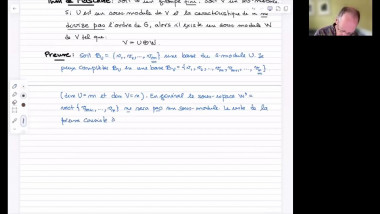 Thm de Maschke: Soit G un groupe fini. Soit V un G-module.
Si U est un sous-module de V et la caractéristique de k ne
divise pas l'ordre de G, alors il existe un sous-module W
de V tel que
V = U⊕W
Preuve: Soit une base du G-module U. Je
peux compléter en une base
(dim U = m et dim V = n). En général le sous-espace W' =
vect ne sera pas un sous-module. Le reste de la
preuve consiste à